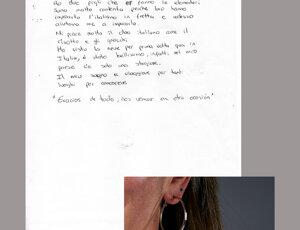 Ho due figli che fanno le elementari
Sono molto contenta perché loro hanno
imparato l'italiano in fretta e adesso
aiutano me a impararlo.
Mi piace molto il cibo italiano come il
risotto e gli gnocchi.
Ho visto la neve per prima volta qua in
Italia, è stato bellissimo, infatti nel mio
paese c'è solo una stagione.
Il mio sogno è viaggiare per tanti
luoghi per conoscere
"Gracias de todo, nos vemos en otra ocasión"